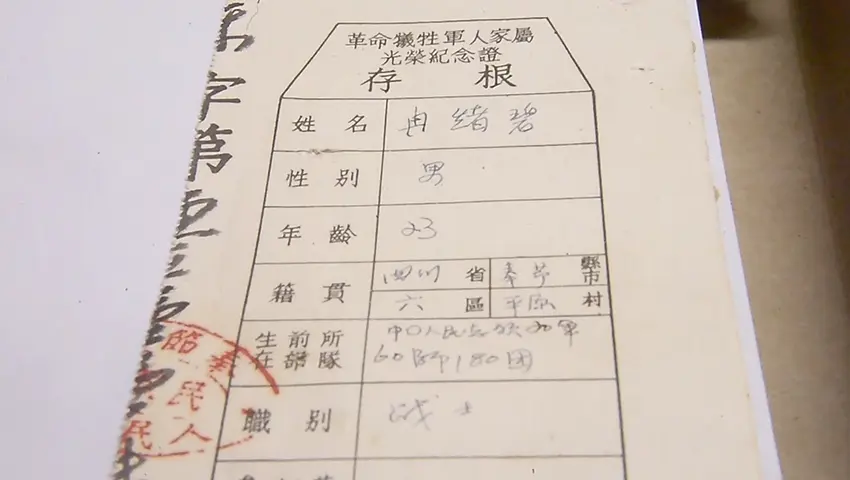 革命犧牲軍人家屬
光榮紀念證
存根
姓名 冉緒碧
性別 男
年齡 23
籍貫 四川省 奉节縣市
六區 平原村
生前所在部隊 中口人民志愿20軍
60师180团
職別 战士
字第